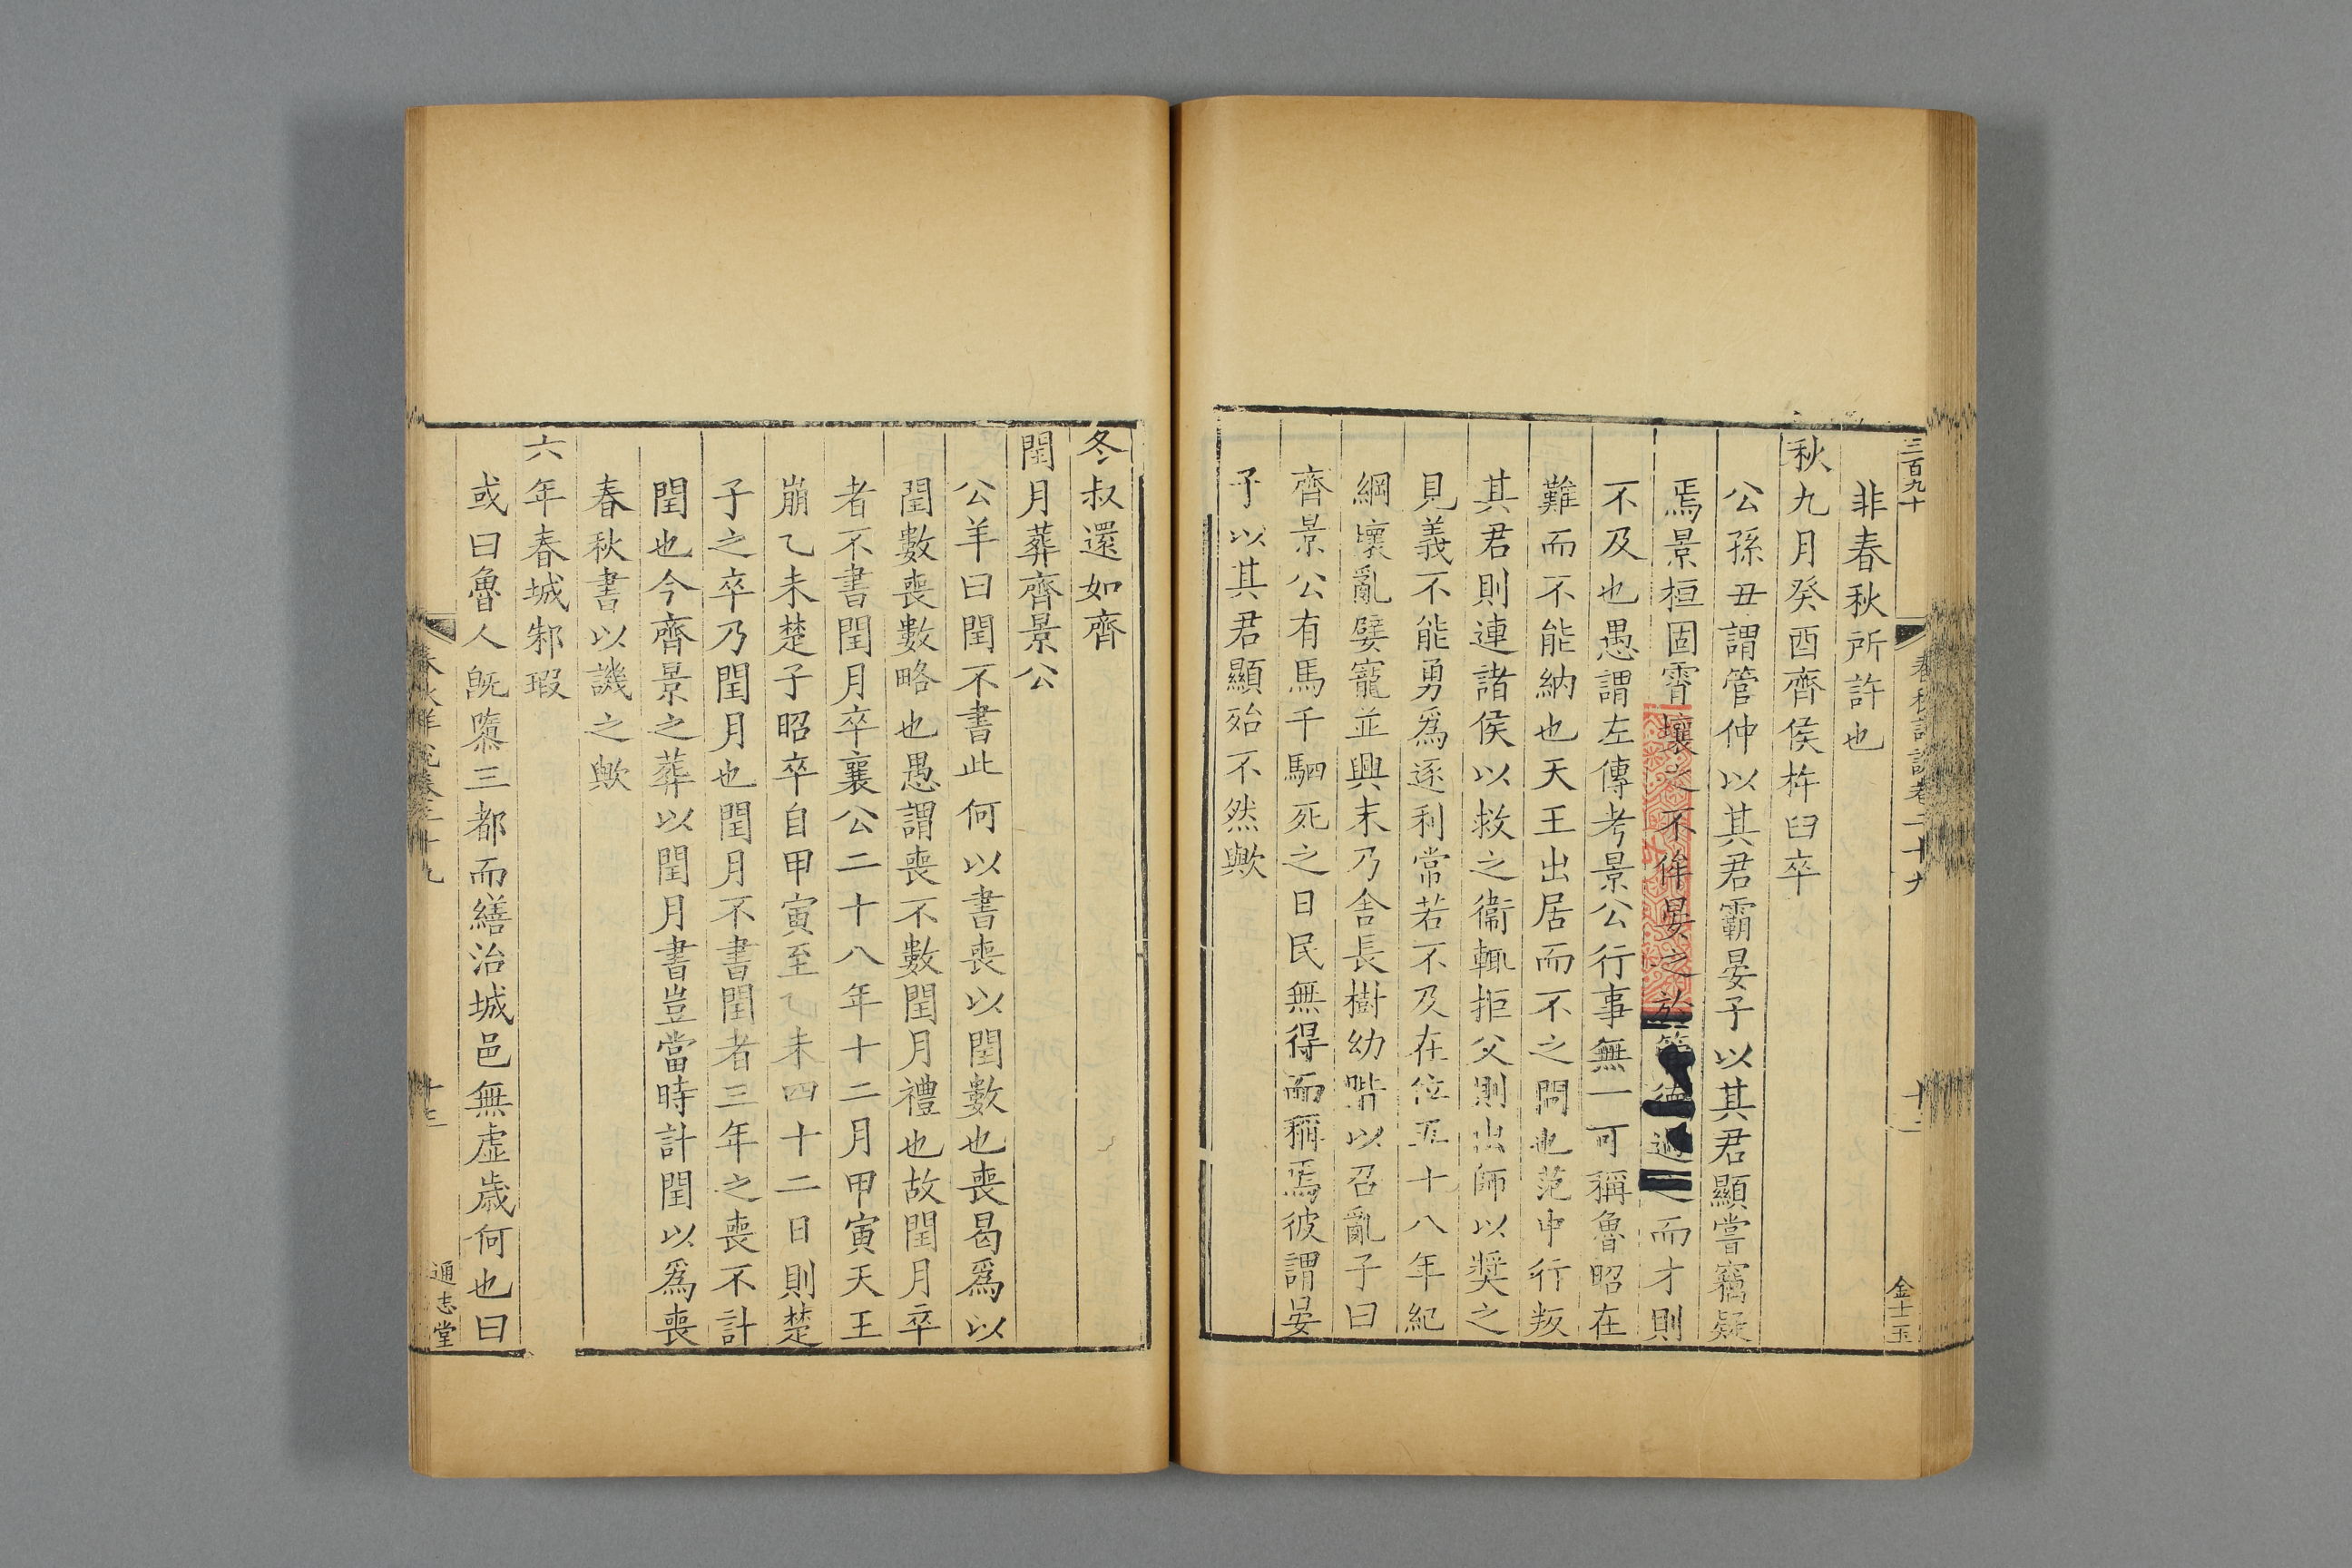 三百九十
春秋詳說卷二十九
十二
金士玉
非春秋所許也
秋九月癸酉齊侯杵臼卒
公孫丑謂管仲以其君霸晏子以其君顯嘗竊疑
焉景桓固霄壤之不侔晏之於管德過之而才則
不及也愚謂左傳考景公行事無一可稱魯昭在
難而不能納也天王出居而不之問也范中行叛
其君則連諸侯以救之衞輒拒父則出師以奬之
見義不能勇爲逐利常若不及在位五十八年紀
綱壞亂嬖寵並興末乃舍長樹幼階以召亂子曰
齊景公有馬千駟死之日民無得而稱焉彼謂晏
子以其君顯殆不然歟
冬叔還如齊
閏月葬齊景公
公羊曰閏不書此何以書喪以閏數也喪曷爲以
閏數喪數略也愚謂喪不數閏月禮也故閏月卒
者不書閏月卒襄公二十八年十二月甲寅天王
崩乙未楚子昭卒自甲寅至乙未四十二日則楚
子之卒乃閏月也閏月不書閏者三年之喪不計
閏也今齊景之葬以閏月書豈當時計閏以爲喪
春秋書以譏之歟
六年春城邾瑕
或曰魯人旣隳三都而繕治城邑無虛歲何也曰
春秋詳說卷二十九
十二
通志堂